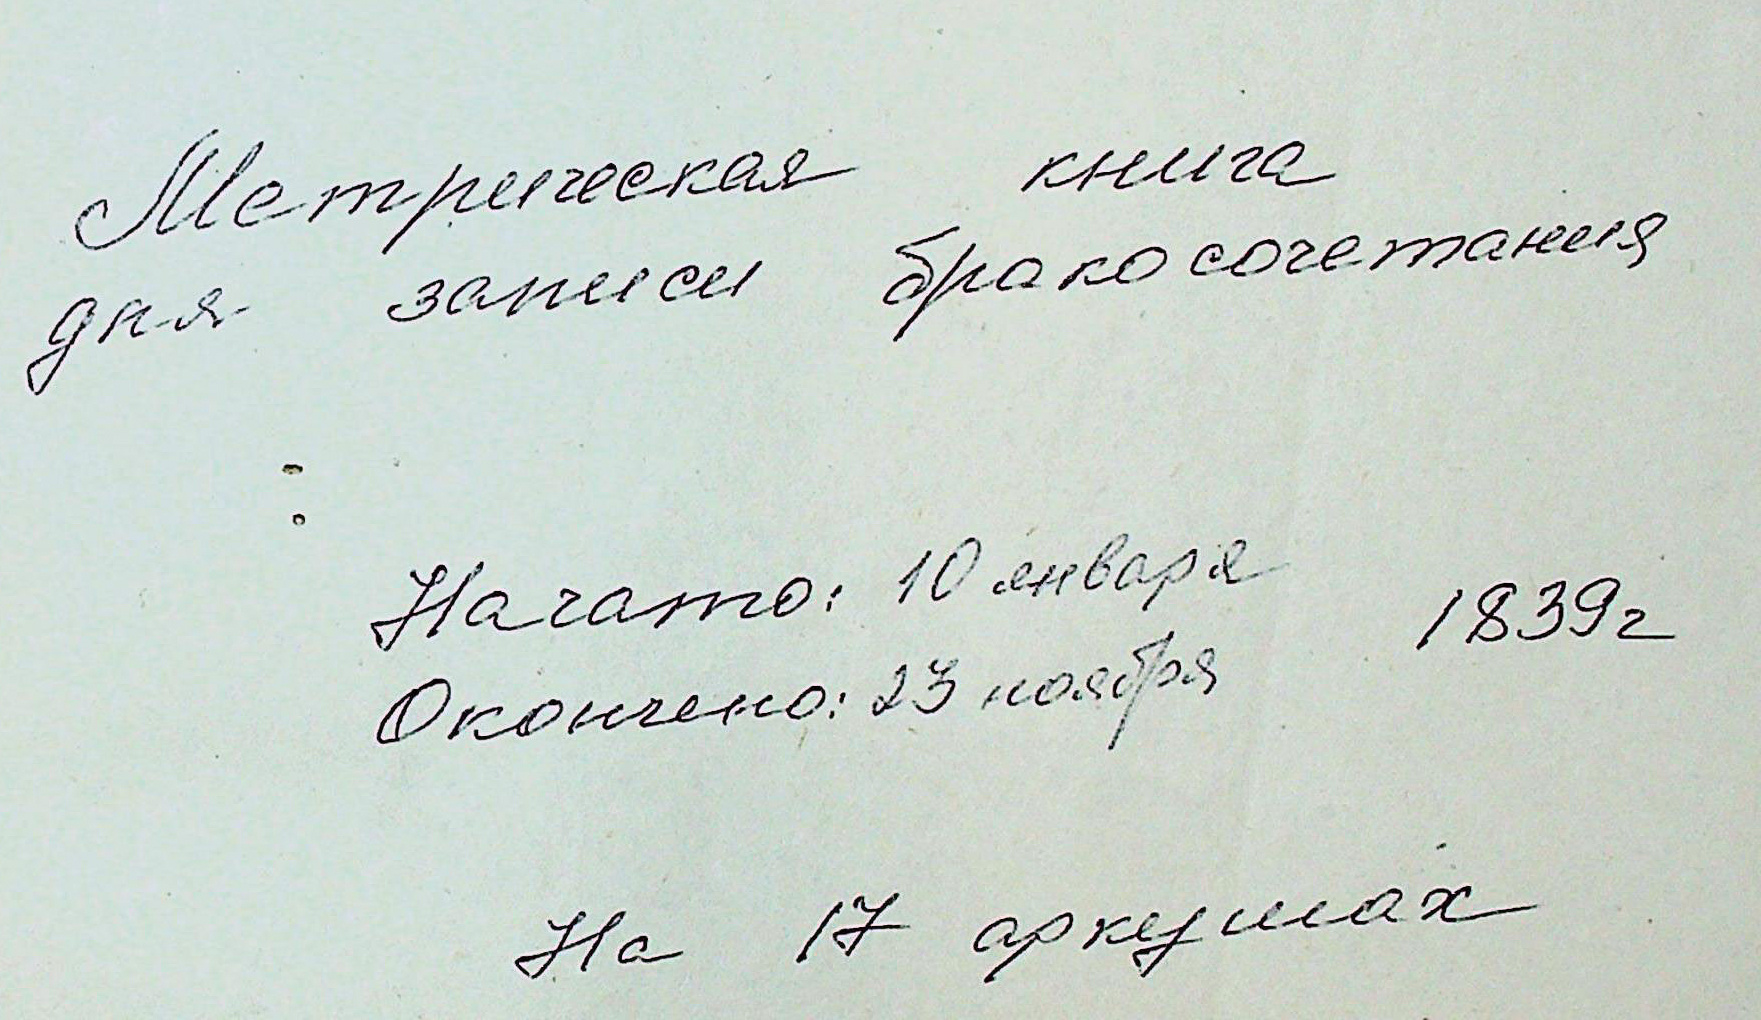 Метрическая книга
для записи бракосочетания
Начато: 10 января
1839г
Окончено: 23 ноября
На 17 аркушах